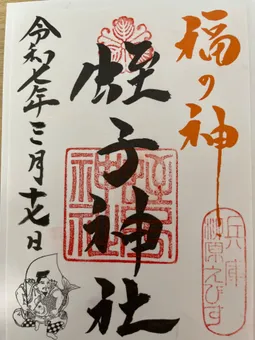 福の神
蛭子神社
令和七年三月十七日
兵庫
柳原えびす